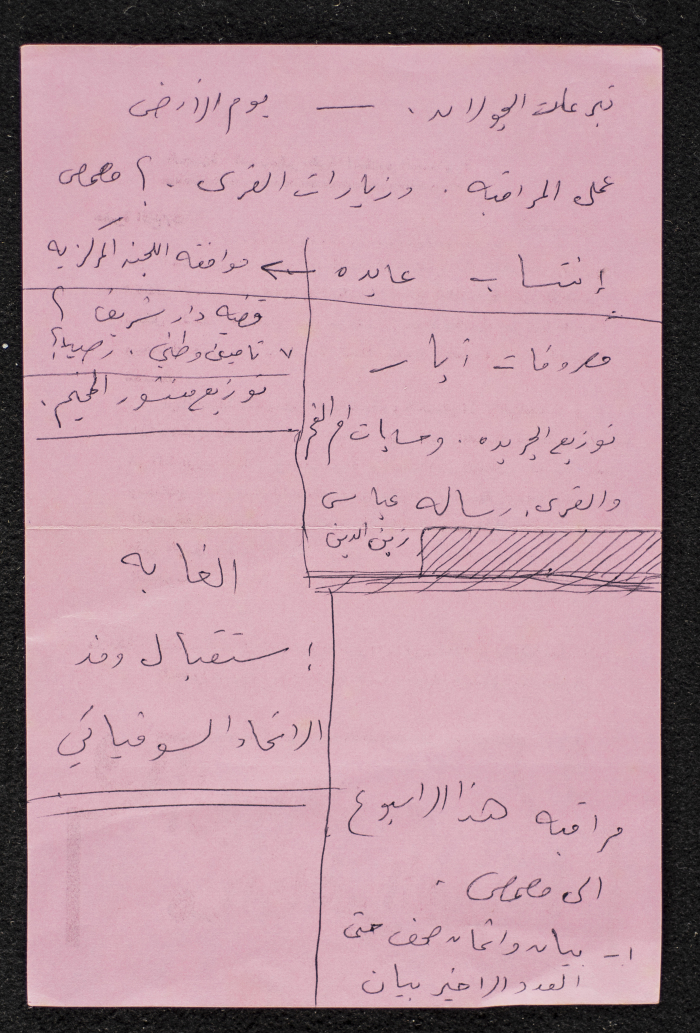 تبرعات الجولان . — يوم الأرض
عمل المراقبه . وزيارات القرى . ؟ مصمص
إنتساب عايده ← موافقه اللجنه المركزيه
قضيه دار شريف ؟
٧ تامين وطني . رصيد ؟
توزيع منشور المخيم .
مصروفات أيار
توزيع الجريده . وحسابات ام الفحم
والقرى . رساله عباس
زين الدين
الغابه
إستقبال وفد
الاتحاد السوفياتي
مراقبه هذا الاسبوع
الى مصمص .
١- بيان واثمان صحف حتى
العدد الاخير بيان